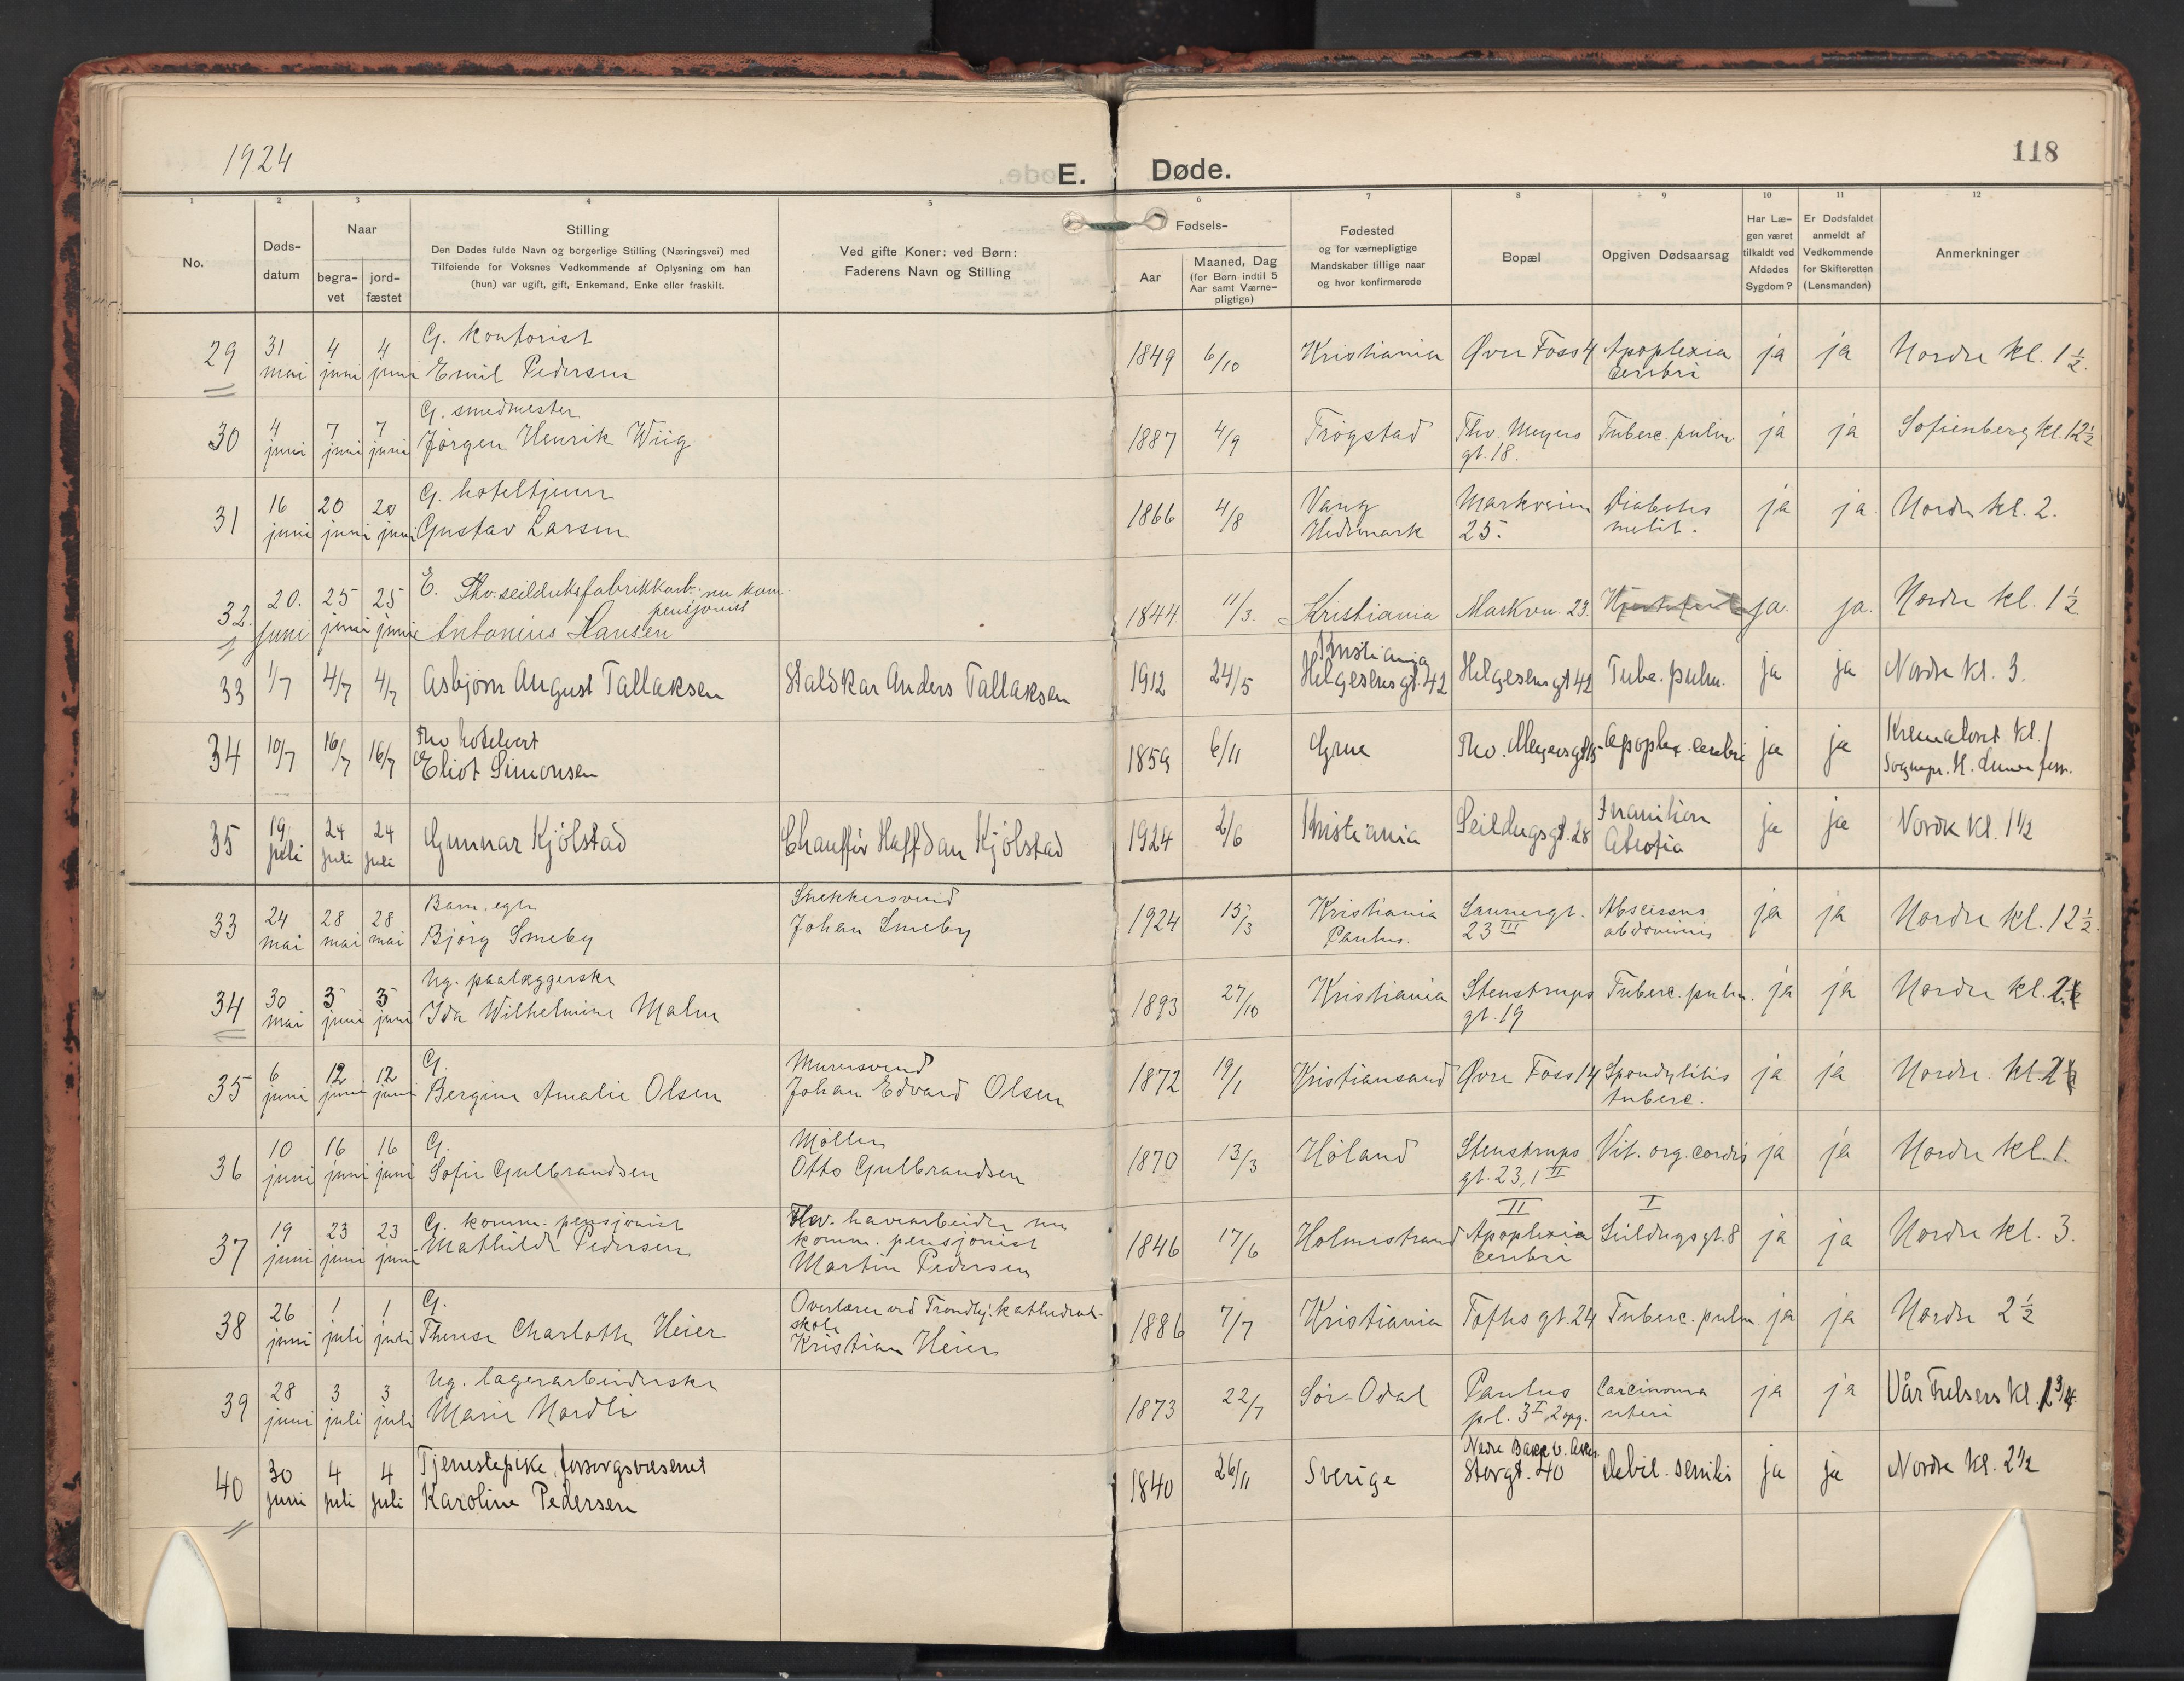 1924
E. Døde.
118
1 2 3 4 5 6 7 8 9 10 11 12
No.
Døds-
datum
Naar
begra-
vet
jord-
fæstet
Stilling
Den Dødes fulde Navn og borgerlige Stilling (Næringsvei) med
Tilføiende for Voksnes Vedkommende af Oplysning om han
(hun) var ugift, gift, Enkemand, Enke eller fraskilt.
Ved gifte Koner: ved Børn:
Faderens Navn og Stilling
Fødsels-
Aar
Maaned, Dag
(for Børn indtil 5
Aar samt Værne-
pligtige)
Fødested
og for værnepligtige
Mandskaber tillige naar
og hvor konfirmerede
Bopæl
Opgiven Dødsaarsag
Har Læ-
gen været
tilkaldt ved
Afdødes
Sygdom?
Er Dødsfaldet
anmeldt af
Vedkommende
for Skifteretten
(Lensmanden)
Anmerkninger
29 31 mai 4 juni 4 juni G. kontorist
Emil Pedersen
1849 6/10 Kristiania Øvre Foss 4 Apoplexia cerebri ja ja Nordre kl. 1½.
30 4 juni 7 juni 7 juni G. smedmester
Jörgen Henrik Wiig
1887 4/9 Trögstad Thv. Meyers gt. 18. Tuberc. pulm. ja ja Sofienberg kl. 12½
31 16 juni 20 juni 20 juni G. hoteltjener
Gustav Larsen
1866 4/8 Vang Hedemark Markveien 25. Diabetes melit. ja ja. Nordre kl. 2.
32. 20. juni 25 juni 25 juni E. Fhv seilduksfabrikkarb. nu kom pensjonist
Antonius Hansen
1844 11/3. Kristiania Markvn. 23. ja. ja. Nordre kl. 1½
33 1/7 4/7 4/7 Asbjørn August Tallaksen Staldkar Anders Tallaksen
1912 24/5 Kristiania Helgesens gt. 42 Helgesens gt 42 Tube. pulm. ja ja Nordre kl. 3.
34 10/7 16/7 16/7 Fhv hotelvert
Eliot Simonsen
1859 6/11 Grue Thv. Meyersgt 15 Apoplex. cerebri ja ja Krematoriet kl. 1
Sognepr. H.
35 19 juli 24 juli 24 juli Gunnar Kjölstad Chauffør Halfdan Kjölstad
1924 2/6 Kristiania Seildugsgt. 28 Inanition Atrofia ja ja Nordre kl. 1½
33 24 mai 28 mai 28 mai Barn, egte
Bjørg Smeby
Snekkersvend
Johan Smeby
1924 15/3 Kristiania Paulus. Sannergt. 23 III Abscessus abdominis ja ja Nordre kl. 12½.
34 30 mai 3 juni 3 juni Ug. paalæggerske
Ida Wilhelmine Malm
1893 27/10 Kristiania Stenstrups gt. 19 Tuberc. pulm. ja ja Nordre kl. 2
35 6 juni 12 juni 12 juni G.
Bergine Amalie Olsen
Murersvend
Johan Edvard Olsen
1872 19/1 Kristiansand Øvre Foss 14 Spondylitis tuberc. ja ja Nordre kl. 2
36 10 juni 16 juni 16 juni G.
Sofie Gulbrandsen
Møller
Otto Gulbrandsen
1870 13/3 Höland Stenstrups gt. 23, 1 II Vit. org. cordis ja ja Nordre kl. 1.
37 19 juni 23 juni 23 juni G. komm. pensjonist
Mathilde Pedersen
Fhv. havnearbeider nu
komm. pensjonist
Martin Pedersen
1846 17/6 Holmestrand II Apoplexia cerebri I Seildugsgt. 8 ja ja Nordre kl. 3.
38 26 juni 1 juli 1 juli G.
Therese Charlotte Heier
Overlærer ved Trondhj. kathedral-
skole
Kristian Heier
1886 7/7 Kristiania Toftes gt. 24 Tuberc. pulm ja ja Nordre 2½
39 28 juni 3 juli 3 juli Ug. lagerarbeiderske
Marie Nordli
1873 22/7 Sör-Odal Paulus pl. 3 I, 2 opg. Carcinoma uteri ja ja Vår Frelsers kl. 1¾
40 30 juni 4 juli 4 juli Tjenestepike, forsorgsvesenet
Karoline Pedersen
1840 26/11 Sverige Storgt. 40 Debil. senilis ja ja Nordre kl. 2½